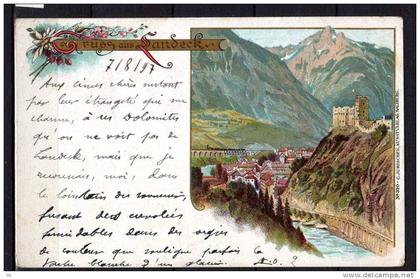 Gruss aus Landeck.
7/8/97
Aux cimes chères surtout
par leur étrangeté qui me
charme, à ces Dolomites
qu'on ne voit pas de
Landeck, mais que je
reconnais, moi, dans
le lointain des souvenirs,
fusant des envolées
formidables dans des orgies
de couleur que souligne parfois la
tache blanche d'un glacier.